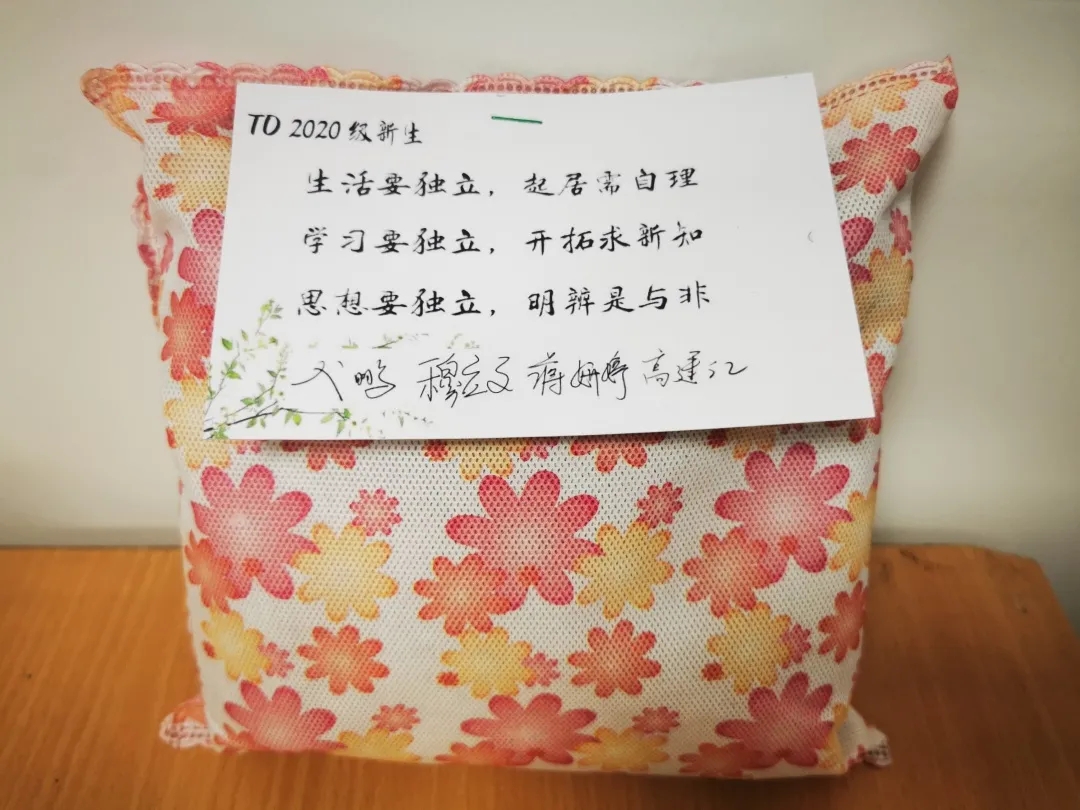 TO 2020级新生
生活要独立，起居需自理
学习要独立，开拓求新知
思想要独立，明辨是与非
蒋妍婷 高运江